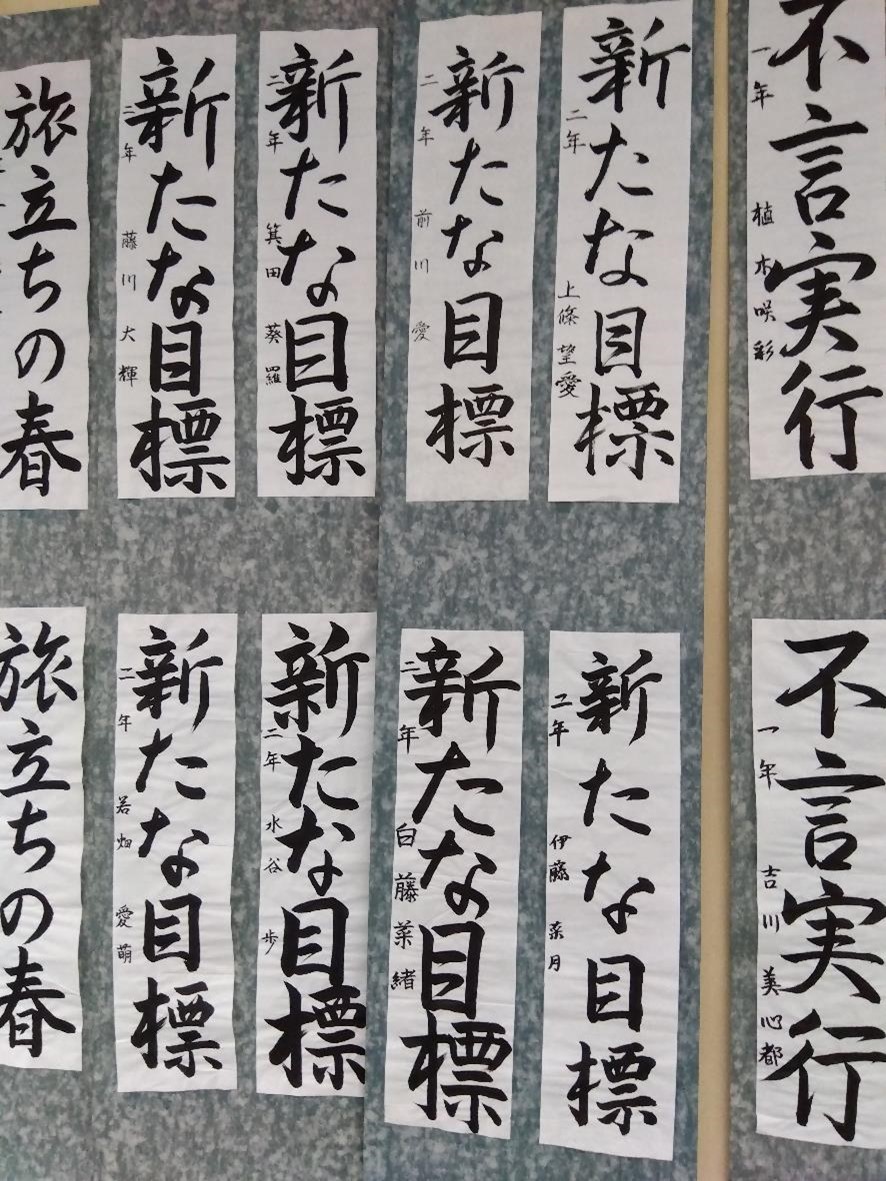 不言実行
一年 植木咲彩
新たな目標
二年 上條望愛
新たな目標
二年 前川 愛
新たな目標
二年 箕田 葵羅
新たな目標
二年 藤川大輝
旅立ちの春
不言実行
一年 吉川 美心都
新たな目標
二年 伊藤 菜月
新たな目標
二年 白藤菜緒
新たな目標
二年 水谷 歩
新たな目標
二年 若畑 愛萌
旅立ちの春